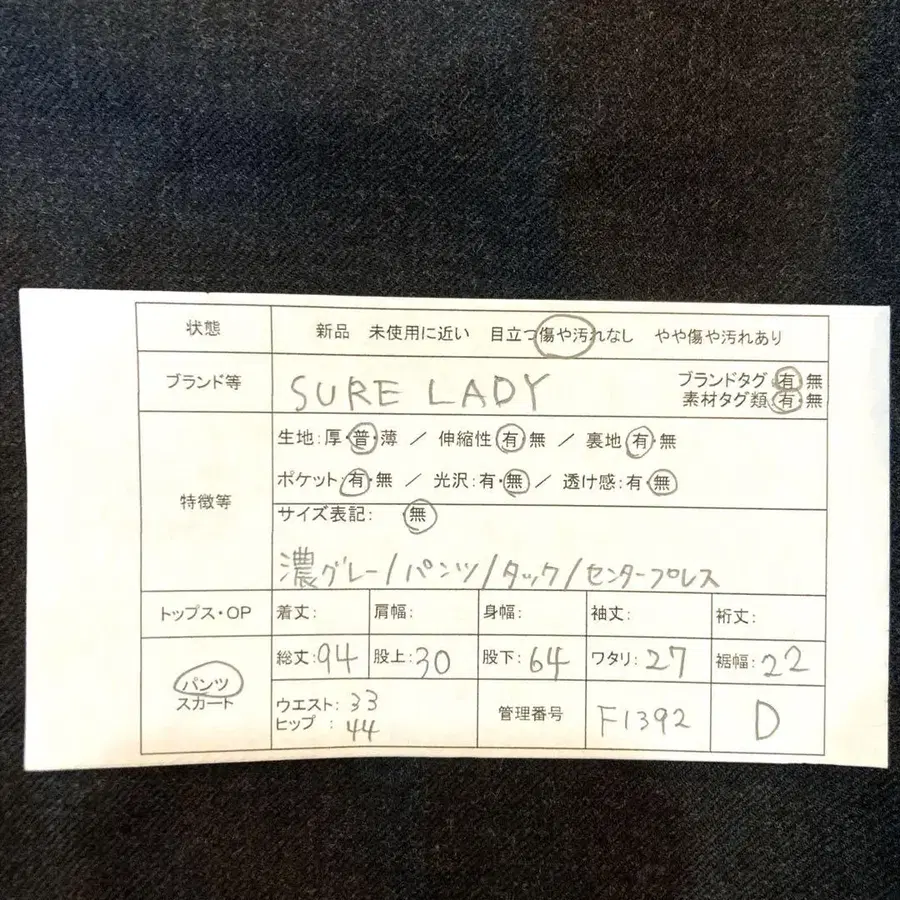 状態 新品 未使用に近い 目立つ傷や汚れなし やや傷や汚れあり
ブランド等 SURE LADY ブランドタグ:有・無
素材タグ類:有・無
特徴等
生地:厚・普・薄 / 伸縮性:有・無 / 裏地:有・無
ポケット:有・無 / 光沢:有・無 / 透け感:有・無
サイズ表記: 無
濃グレー/パンツ/タック/センタープレス
トップス・OP 着丈: 肩幅: 身幅: 袖丈: 裄丈:
パンツ
スカート
総丈:94 股上:30 股下:64 ワタリ:27 裾幅:22
ウエスト:33
ヒップ:44
管理番号 F1392 D